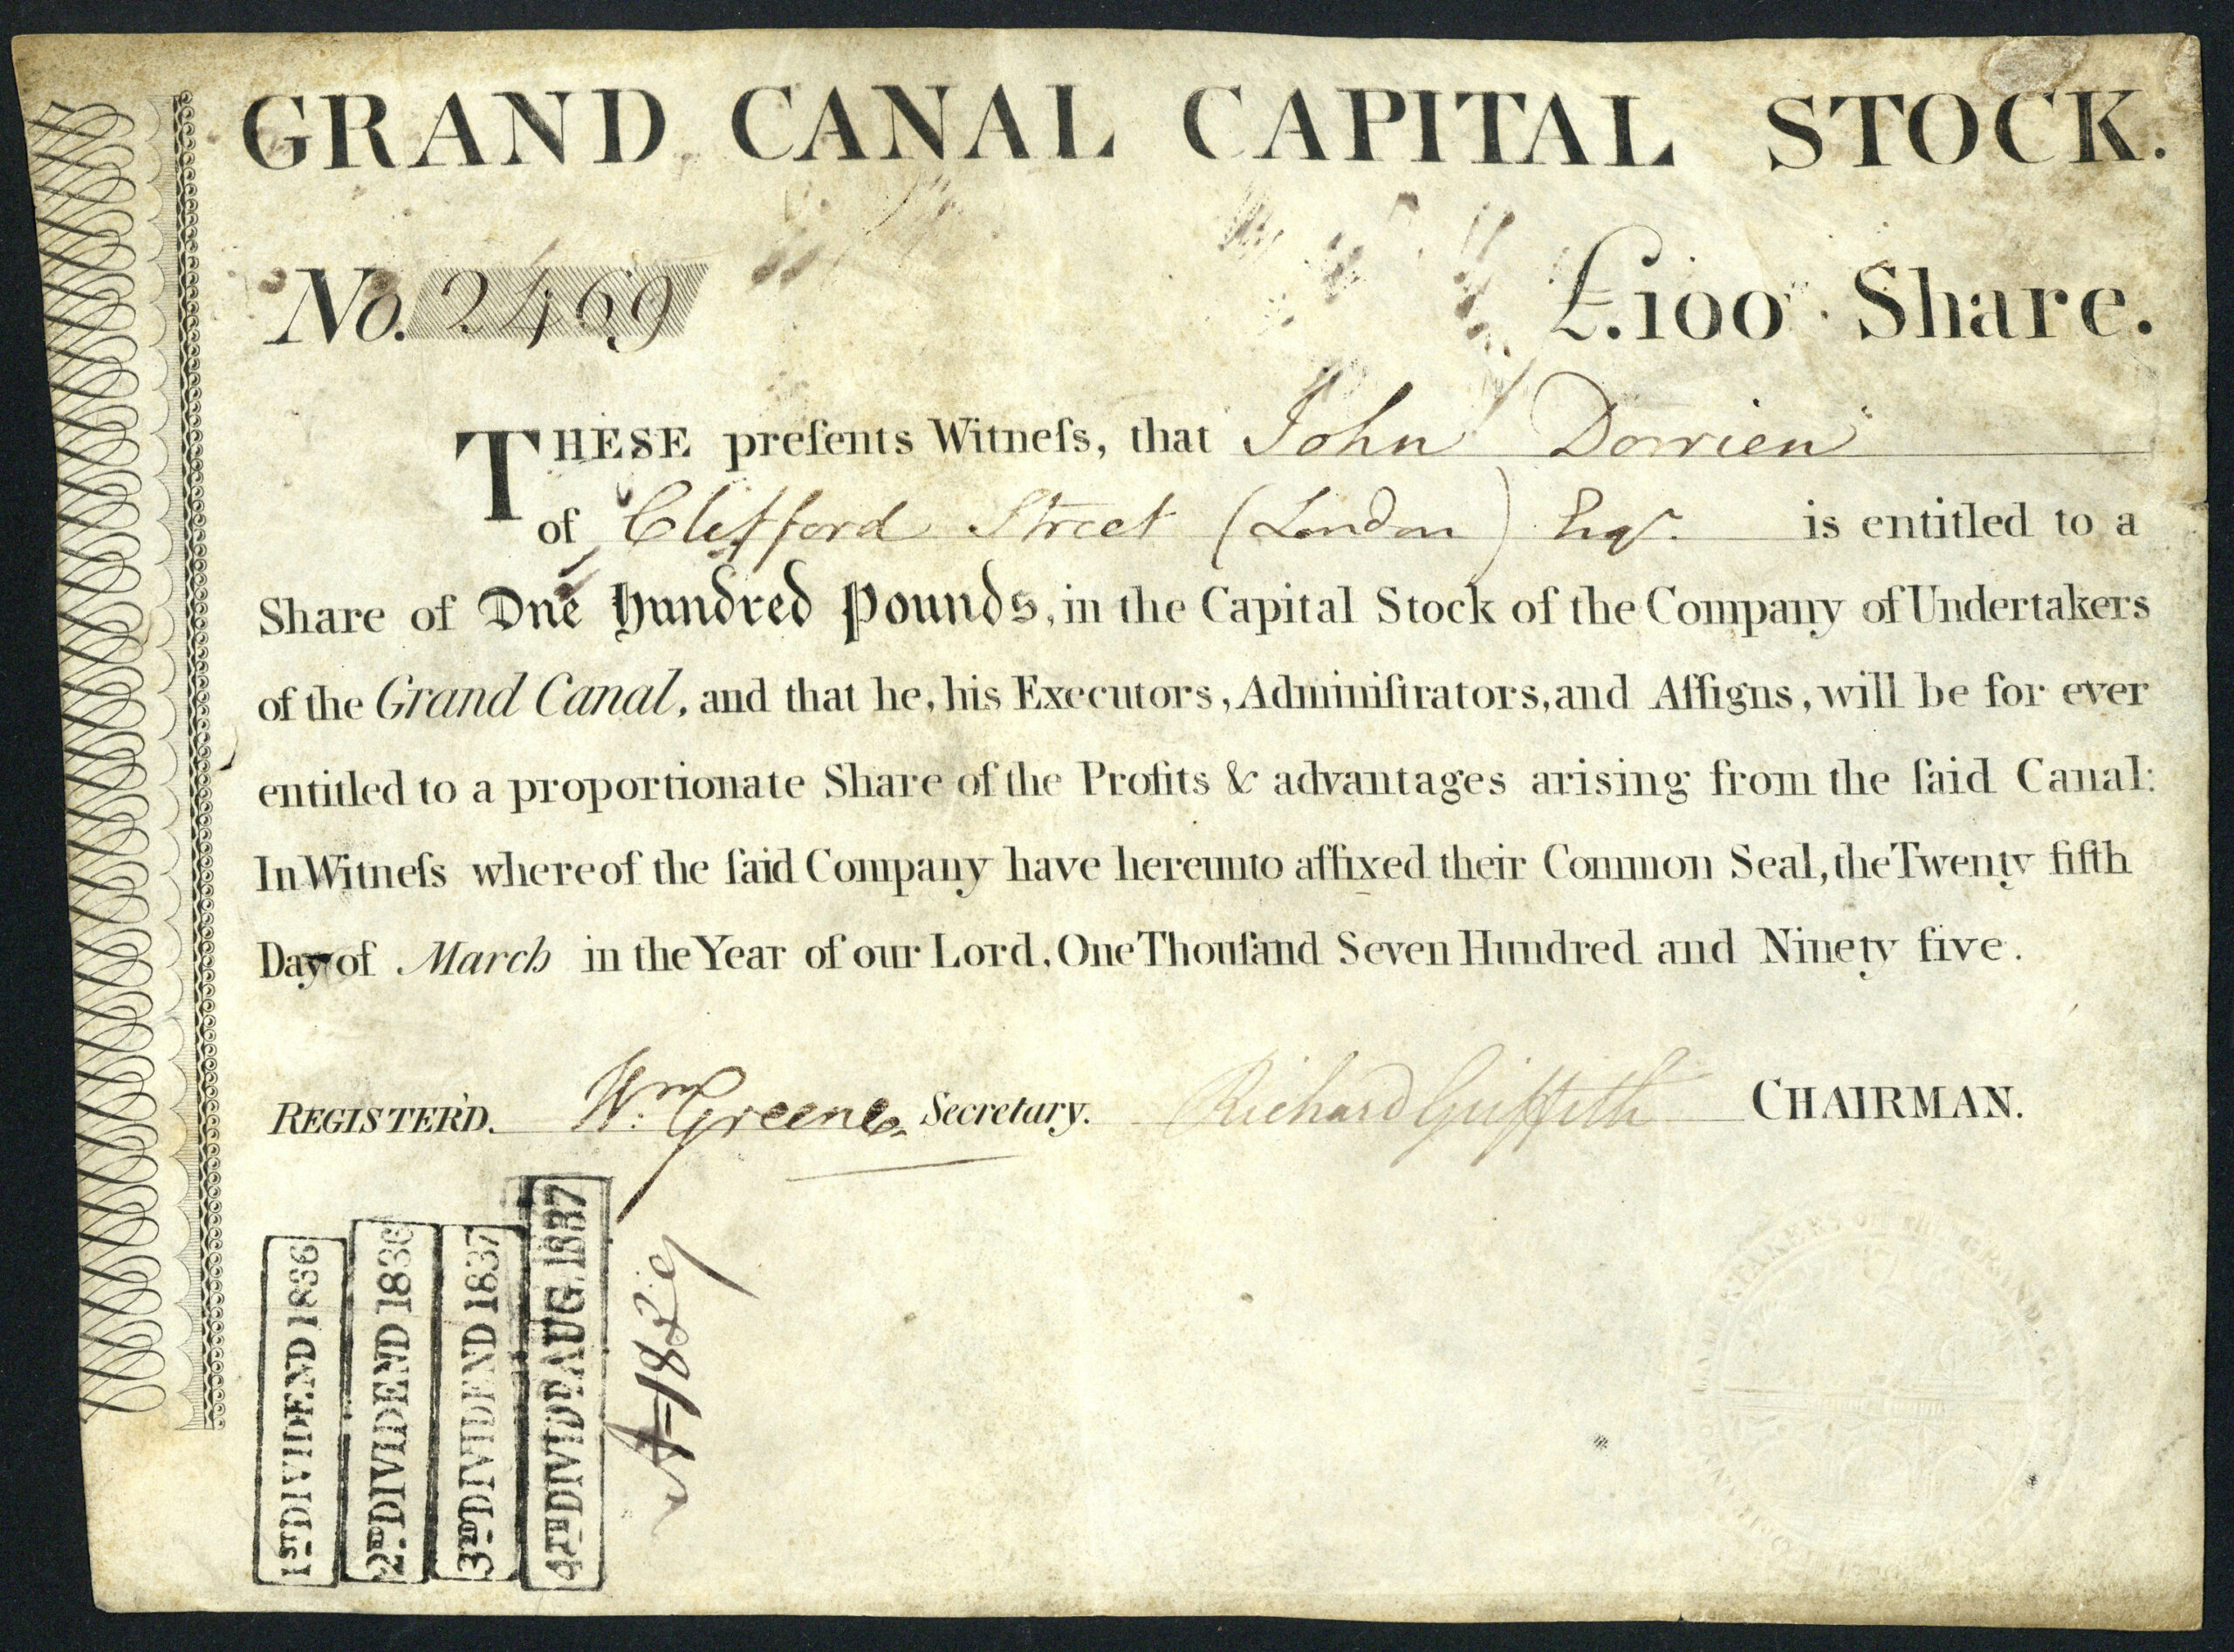 GRAND CANAL CAPITAL STOCK.
No. 2469
£.100 Share.
THESE preſents Witneſs, that John Dorrien
of Cliffford Street (London) Esqr. is entitled to a
Share of One Hundred Pounds, in the Capital Stock of the Company of Undertakers
of the Grand Canal, and that he, his Executors, Adminiſtrators, and Aſſigns, will be for ever
entitled to a proportionate Share of the Profits & advantages arising from the ſaid Canal:
In Witneſs whereof the ſaid Company have hereunto affixed their Common Seal, the Twenty fifth
Day of March in the Year of our Lord, One Thouſand Seven Hundred and Ninety five.
REGISTER'D. Wm. Greene Secretary. Richard Griffith CHAIRMAN.
1ST DIVIDEND 1836
2ND DIVIDEND 1836
3RD DIVIDEND 1837
4TH DIVIDD. AUG. 1837
A-1829